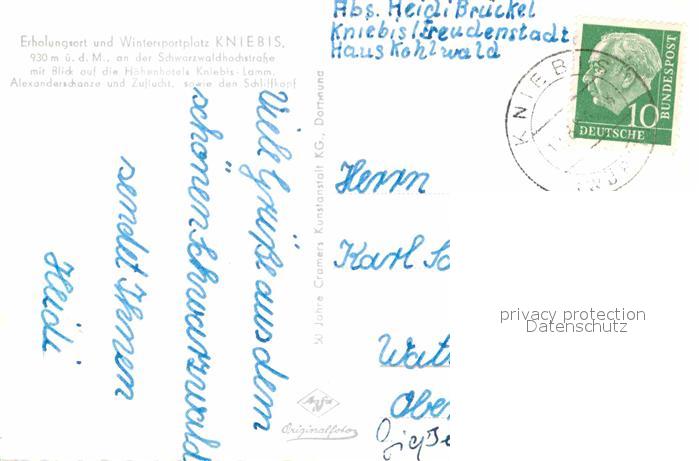 Erholungsort und Wintersportplatz KNIEBIS,
930 m ü. d. M., an der Schwarzwaldhochstraße
mit Blick auf die Höhenhotels Kniebis-Lamm,
Alexanderschanze und Zuflucht, sowie den Schliffkopf
Viele Grüße aus dem
schönen Schwarzwald
sendet Ihnen
Heidi
50 Jahre Cramers Kunstanstalt KG., Dortmund
Agfa
Originalfoto
Abs. Heidi Brückel
Kniebis/Freudenstadt
Haus Kohlwald
KNIEBIS
10
DEUTSCHE
BUNDESPOST
Herrn
Karl Sc
Watz
Ober
Gieße
privacy protection
Datenschutz